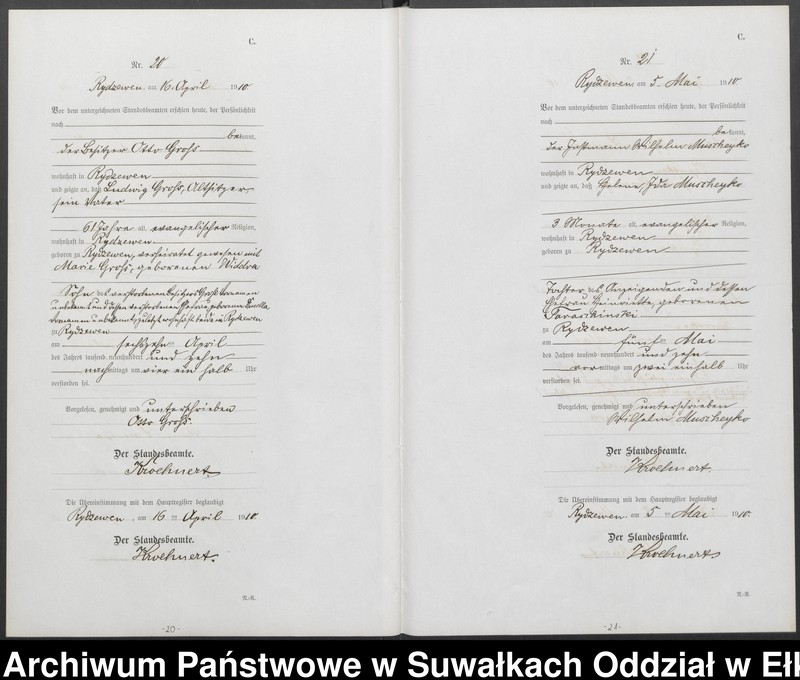 C.
Nr. 20
Rydzewen, am 16. April 1910
Vor dem unterzeichneten Standesbeamten erschien heute, der Persönlichkeit
nach
bekannt,
der Besitzer Otto Groß
wohnhaft in Rydzewen
und zeigte an, daß Ludwig Groß, Altsitzer,
sein Vater
61 Jahre alt, evangelischer Religion,
wohnhaft in Rydzewen
geboren zu Rydzewen, verheiratet gewesen mit
Marie Groß, geborenen Widdra
Sohn des verstorbenen Besitzers Groß Vornamen
unbekannt und dessen verstorbenen Ehefrau, geborenen
Vornamen unbekannt, zuletzt wohnhaft beide in Rydzewen
zu Rydzewen
am sechszehn April
des Jahres tausend neunhundert und zehn
nachmittags um vier ein halb Uhr
verstorben sei.
Vorgelesen, genehmigt und unterschrieben
Otto Groß.
Der Standesbeamte.
Kroehnert.
Die Übereinstimmung mit dem Hauptregister beglaubigt
Rydzewen, am 16 ten April 1910
Der Standesbeamte.
Kroehnert.
N.-R.
-20-
C.
Nr. 21
Rydzewen, am 5. Mai 1910
Vor dem unterzeichneten Standesbeamten erschien heute, der Persönlichkeit
nach
bekannt,
der Instmann Wilhelm Muscheyko
wohnhaft in Rydzewen
und zeigte an, daß Helene, Ida Muscheyko
3 Monate alt, evangelischer Religion,
wohnhaft in Rydzewen
geboren zu Rydzewen
Tochter des Anzeigenden und dessen
Ehefrau Heinriette, geborenen
Taraschinski
zu Rydzewen
am fünf Mai
des Jahres tausend neunhundert und zehn
vormittags um zwei einhalb Uhr
verstorben sei.
Vorgelesen, genehmigt und unterschrieben
Wilhelm Muscheyko
Der Standesbeamte.
Kroehnert.
Die Übereinstimmung mit dem Hauptregister beglaubigt
Rydzewen, am 5 ten Mai 1910.
Der Standesbeamte.
Kroehnert
N.-R.
-21-
Archiwum Państwowe w Suwałkach Oddział w Ełk